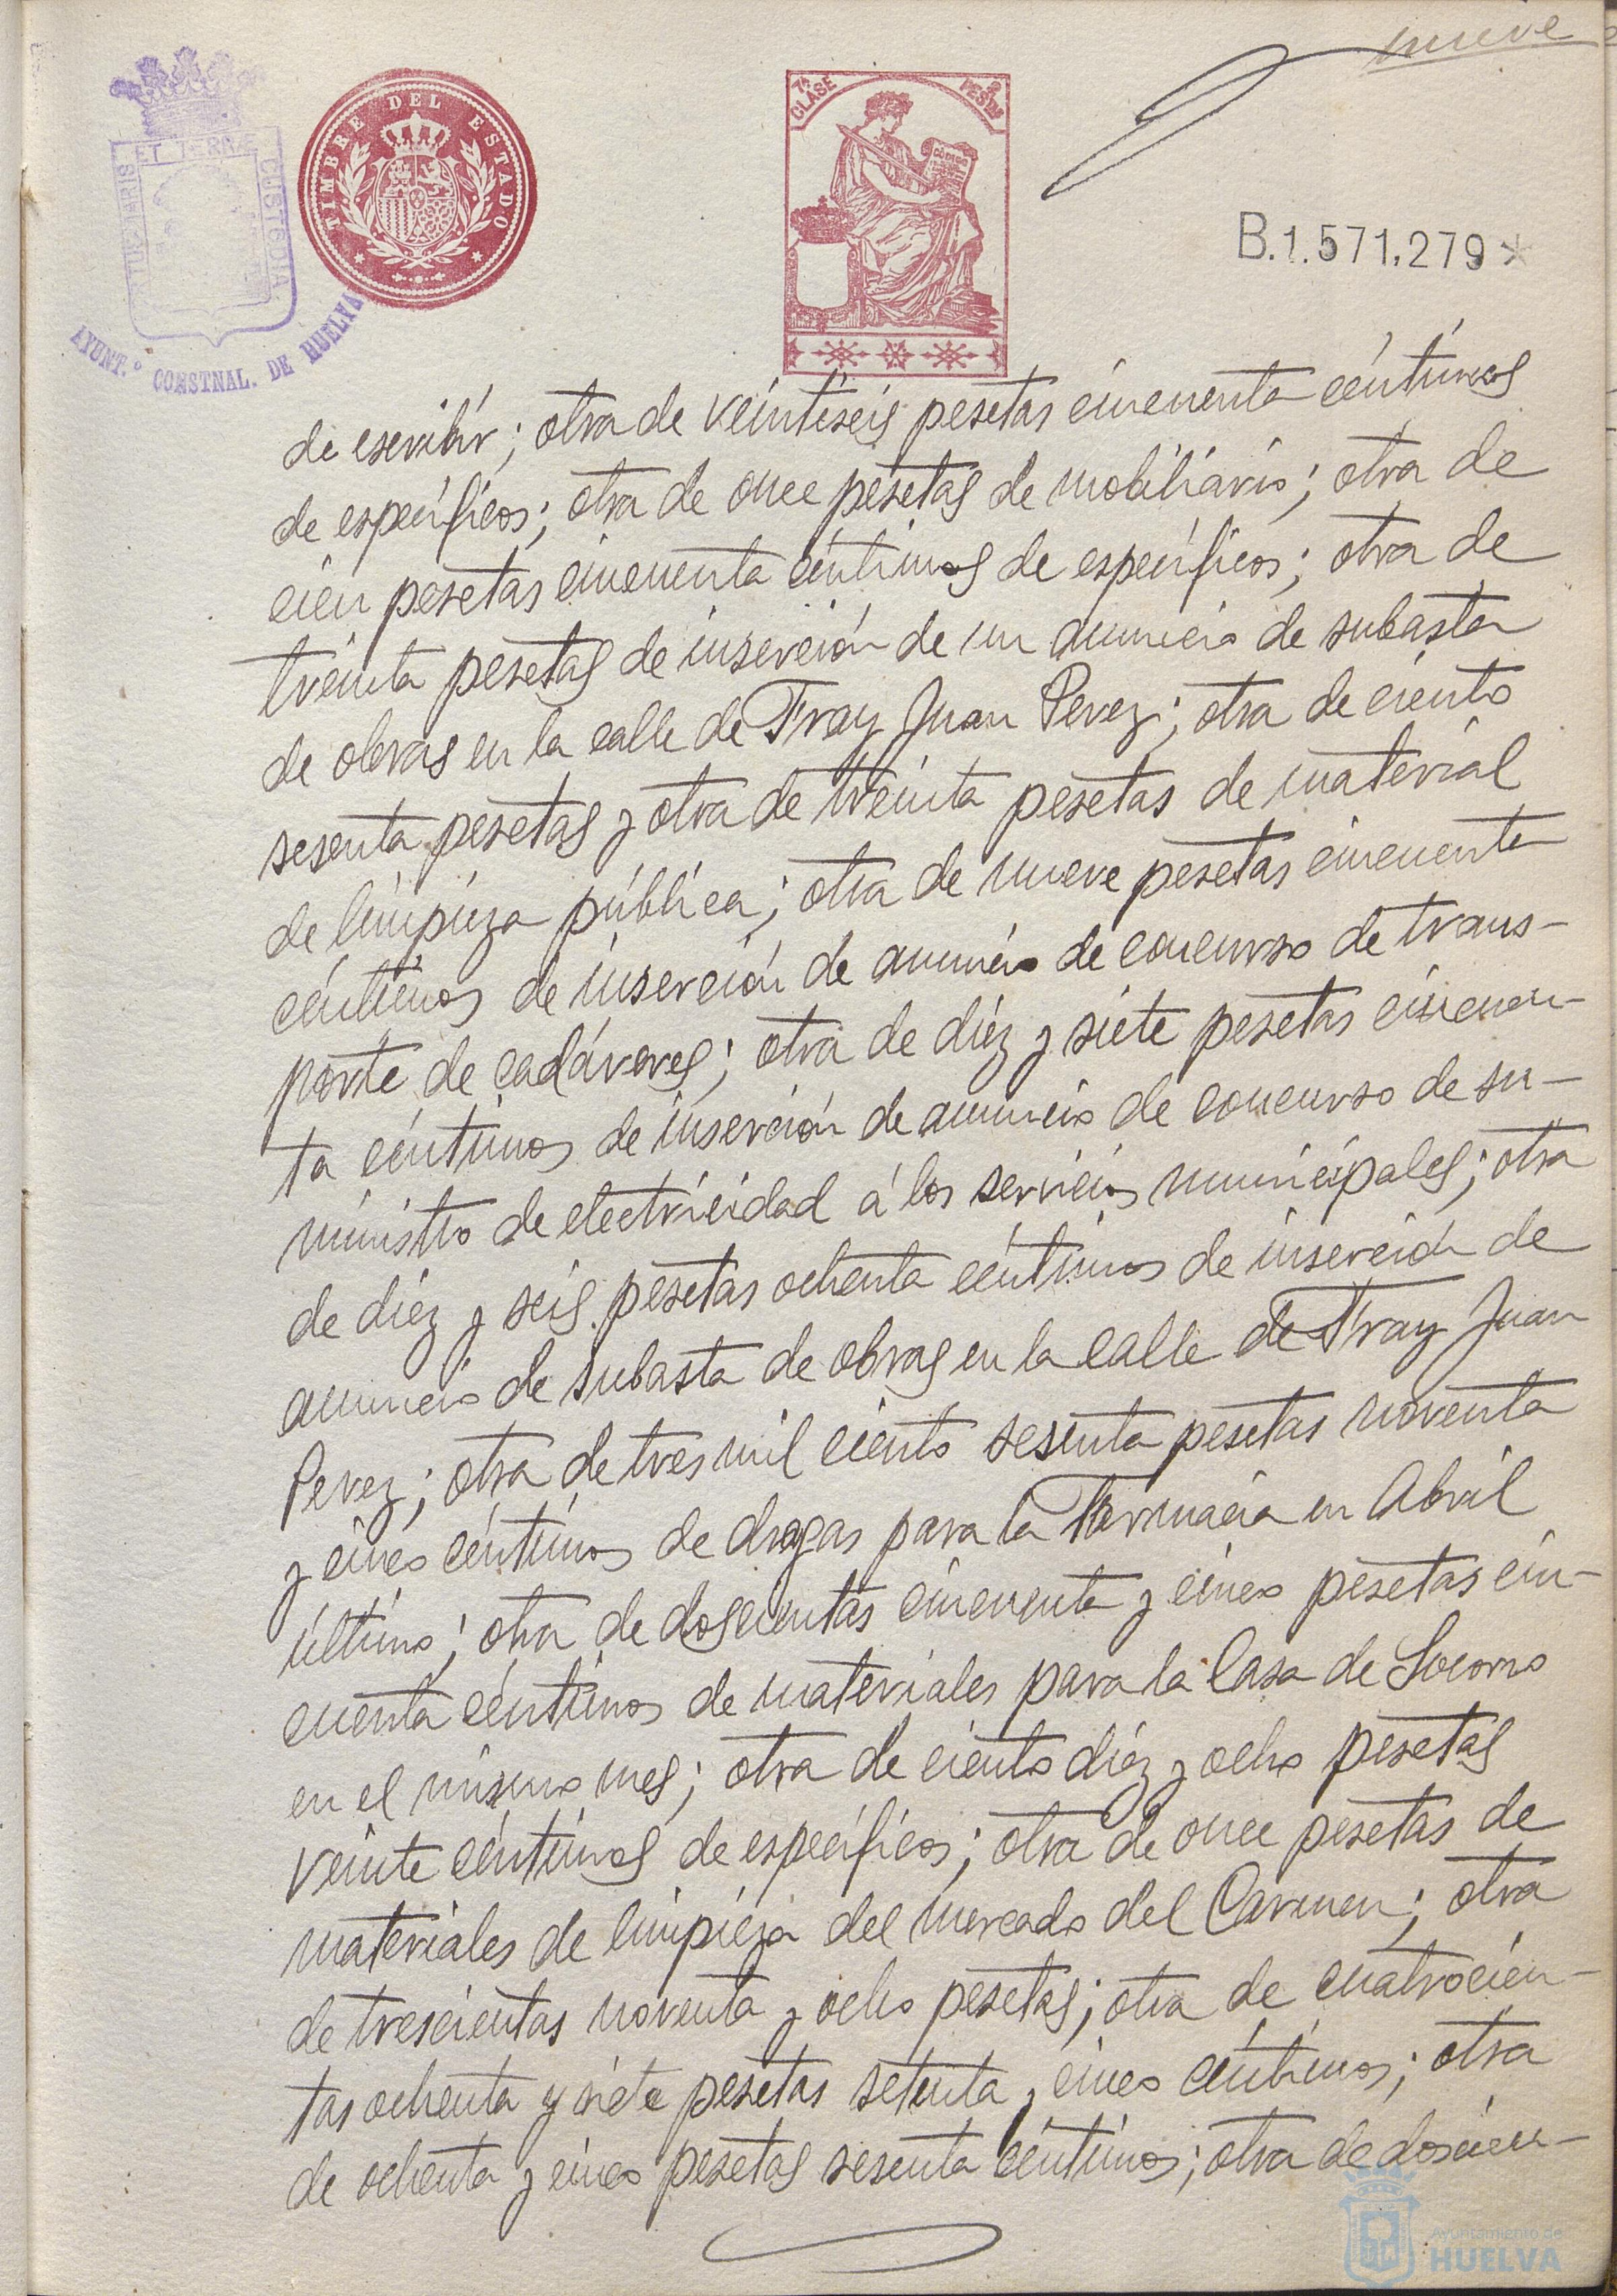 nueve
TUE MARIS ET TERRÆ CUSTODIA
AYUNT.º CONSTNAL. DE HUELVA
TIMBRE DEL ESTADO
7ª CLASE
PESETAS
CODIGO
B.1.571.279*
de escribir; otra de veintiseis pesetas cincuenta céntimos
de específicos; otra de once pesetas de mobiliario; otra de
cien pesetas cincuenta céntimos de específicos; otra de
treinta pesetas de inserción de un anuncio de subasta
de obras en la calle de Fray Juan Perez; otra de ciento
sesenta pesetas y otra de treinta pesetas de material
de limpieza pública; otra de nueve pesetas cincuenta
céntimos de inserción de anuncio de concurso de trans-
porte de cadáveres; otra de diez y siete pesetas cincuen-
ta céntimos de inserción de anuncio de concurso de su-
ministro de electricidad á los servicios municipales; otra
de diez y seis pesetas ochenta céntimos de inserción de
anuncio de subasta de obras en la calle de Fray Juan
Perez; otra de tres mil ciento sesenta pesetas noventa
y cinco céntimos de drogas para la Farmacia en Abril
último; otra de doscientas cincuenta y cinco pesetas cin-
cuenta céntimos de materiales para la Casa de Socorro
en el mismo mes; otra de ciento diez y ocho pesetas
veinte céntimos de específicos; otra de once pesetas de
materiales de limpieza del mercado del Carmen; otra
de trescientas noventa y ocho pesetas; otra de cuatrocien-
tas ochenta y siete pesetas setenta y cinco céntimos; otra
de ochenta y cinco pesetas sesenta céntimos; otra de doscien-
Ayuntamiento de
HUELVA